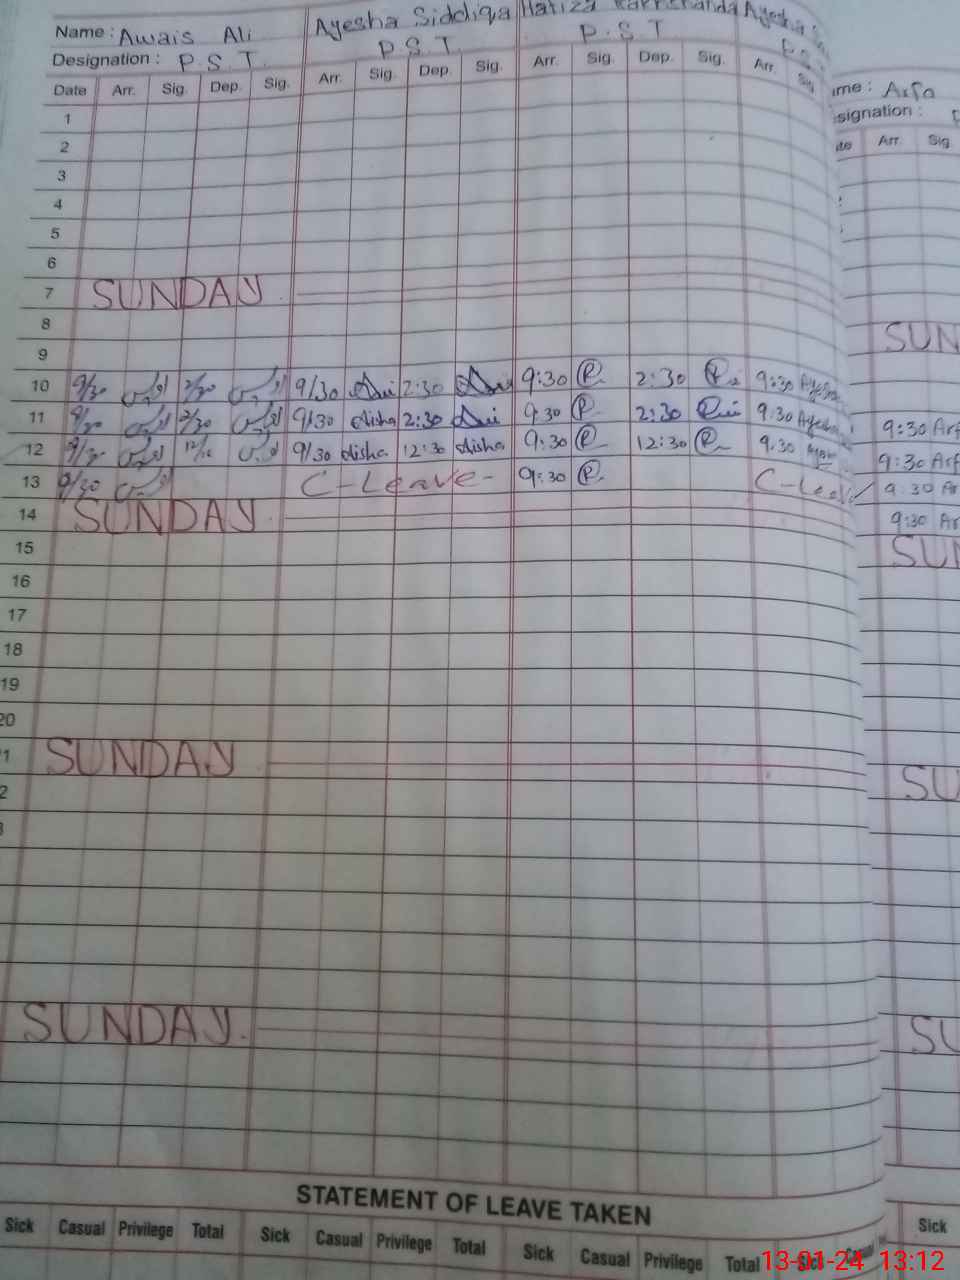 Name : Awais Ali Ayesha Siddiqa Hafiza Ayesha
Designation : P.S.T. P.S.T. P.S.T P.S. ame : Arfa
Date Arr. Sig. Dep. Sig. Arr. Sig. Dep. Sig. Arr. Sig. Dep. Sig. Arr. Sig. signation :
1 Arr. Sig.
2
3
4
5
6
7 SUNDAY
8 SUN
9
10 9/30 اویس 2/30 اویس 9/30 2:30 9:30 P. 2:30 9:30 Ayesha
11 9/30 اویس 2/30 اویس 9/30 Aisha 2:30 9:30 P. 2:30 9:30 Ayesha 9:30 Arf
12 9/30 اویس 12/30 اویس 9/30 Aisha 12:30 Aisha 9:30 P. 12:30 P. 9:30 9:30 Arf
13 9/30 اویس C-Leave- 9:30 P. C-Leave 9:30 Ar
14 SUNDAY 9:30 Ar
15 SUN
16
17
18
19
20
1 SUNDAY
2 SU
3
SUNDAY. SU
STATEMENT OF LEAVE TAKEN
Sick Casual Privilege Total Sick Casual Privilege Total Sick Casual Privilege Total Sick Casual Sick
13-01-24 13:12